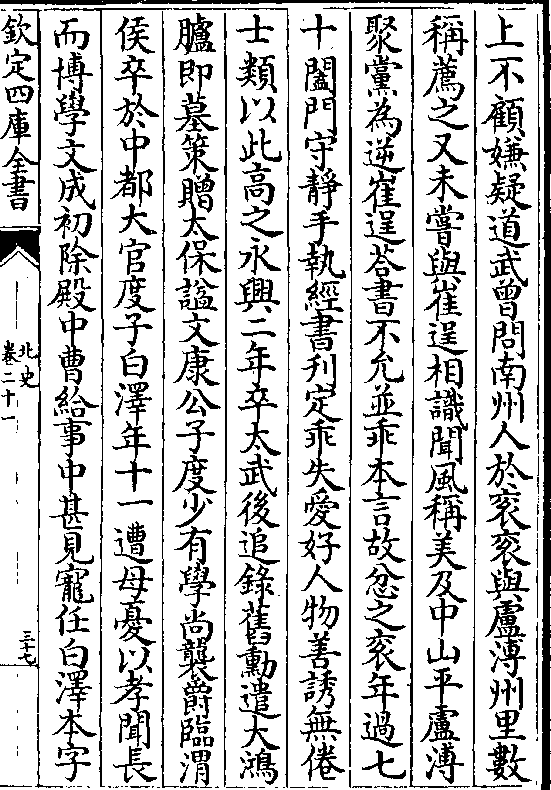 上不顧嫌疑道武曾問南州人於袞袞與盧溥州里數
稱薦之又未嘗與崔逞相識聞風稱美及中山平盧溥
聚黨為逆崔逞荅書不允並乖本言故忿之袞年過七
十闔門守靜手執經書刋定乖失愛好人物善誘無倦
士類以此高之永興二年卒太武後追錄舊勳遣大鴻
臚即墓策贈太保諡文康公子度少有學尚襲爵臨渭
侯卒於中都大官度子白澤年十一遭母憂以孝聞長
而博學文成初除殿中曹給事中甚見寵任白澤本字
欽定四庫全書
北史
卷二十一
三十七